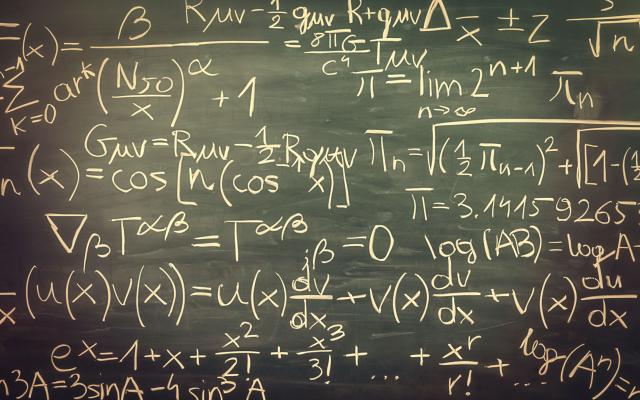 R_μν - 1/2 g_μν R + g_μν Δ = 8πG/c⁴ T_μν
x̄ ± z s/√n
n-1 (x) = β / (N₅₀/x)^α + 1
Σ K=0 ar^k
π = lim n→∞ 2^(n+1) π_n
G_μν = R_μν - 1/2 R g_μν
π_n = √((1/2 π_n-1)² + [1-(1/2
n(x) = cos[n(cos⁻¹ x)]
π = 3.1415 9265
∇_β T^αβ = T^αβ ;β = 0
log(AB) = log A
x (u(x)v(x)) = u(x) dv/dx + v(x) dv/dx + v(x) du/dx
e^x = 1 + x + x²/2! + x³/3! + ... + x^r/r! + ...
log(Aⁿ) = n
n3A = 3sinA - 4 sin³ A